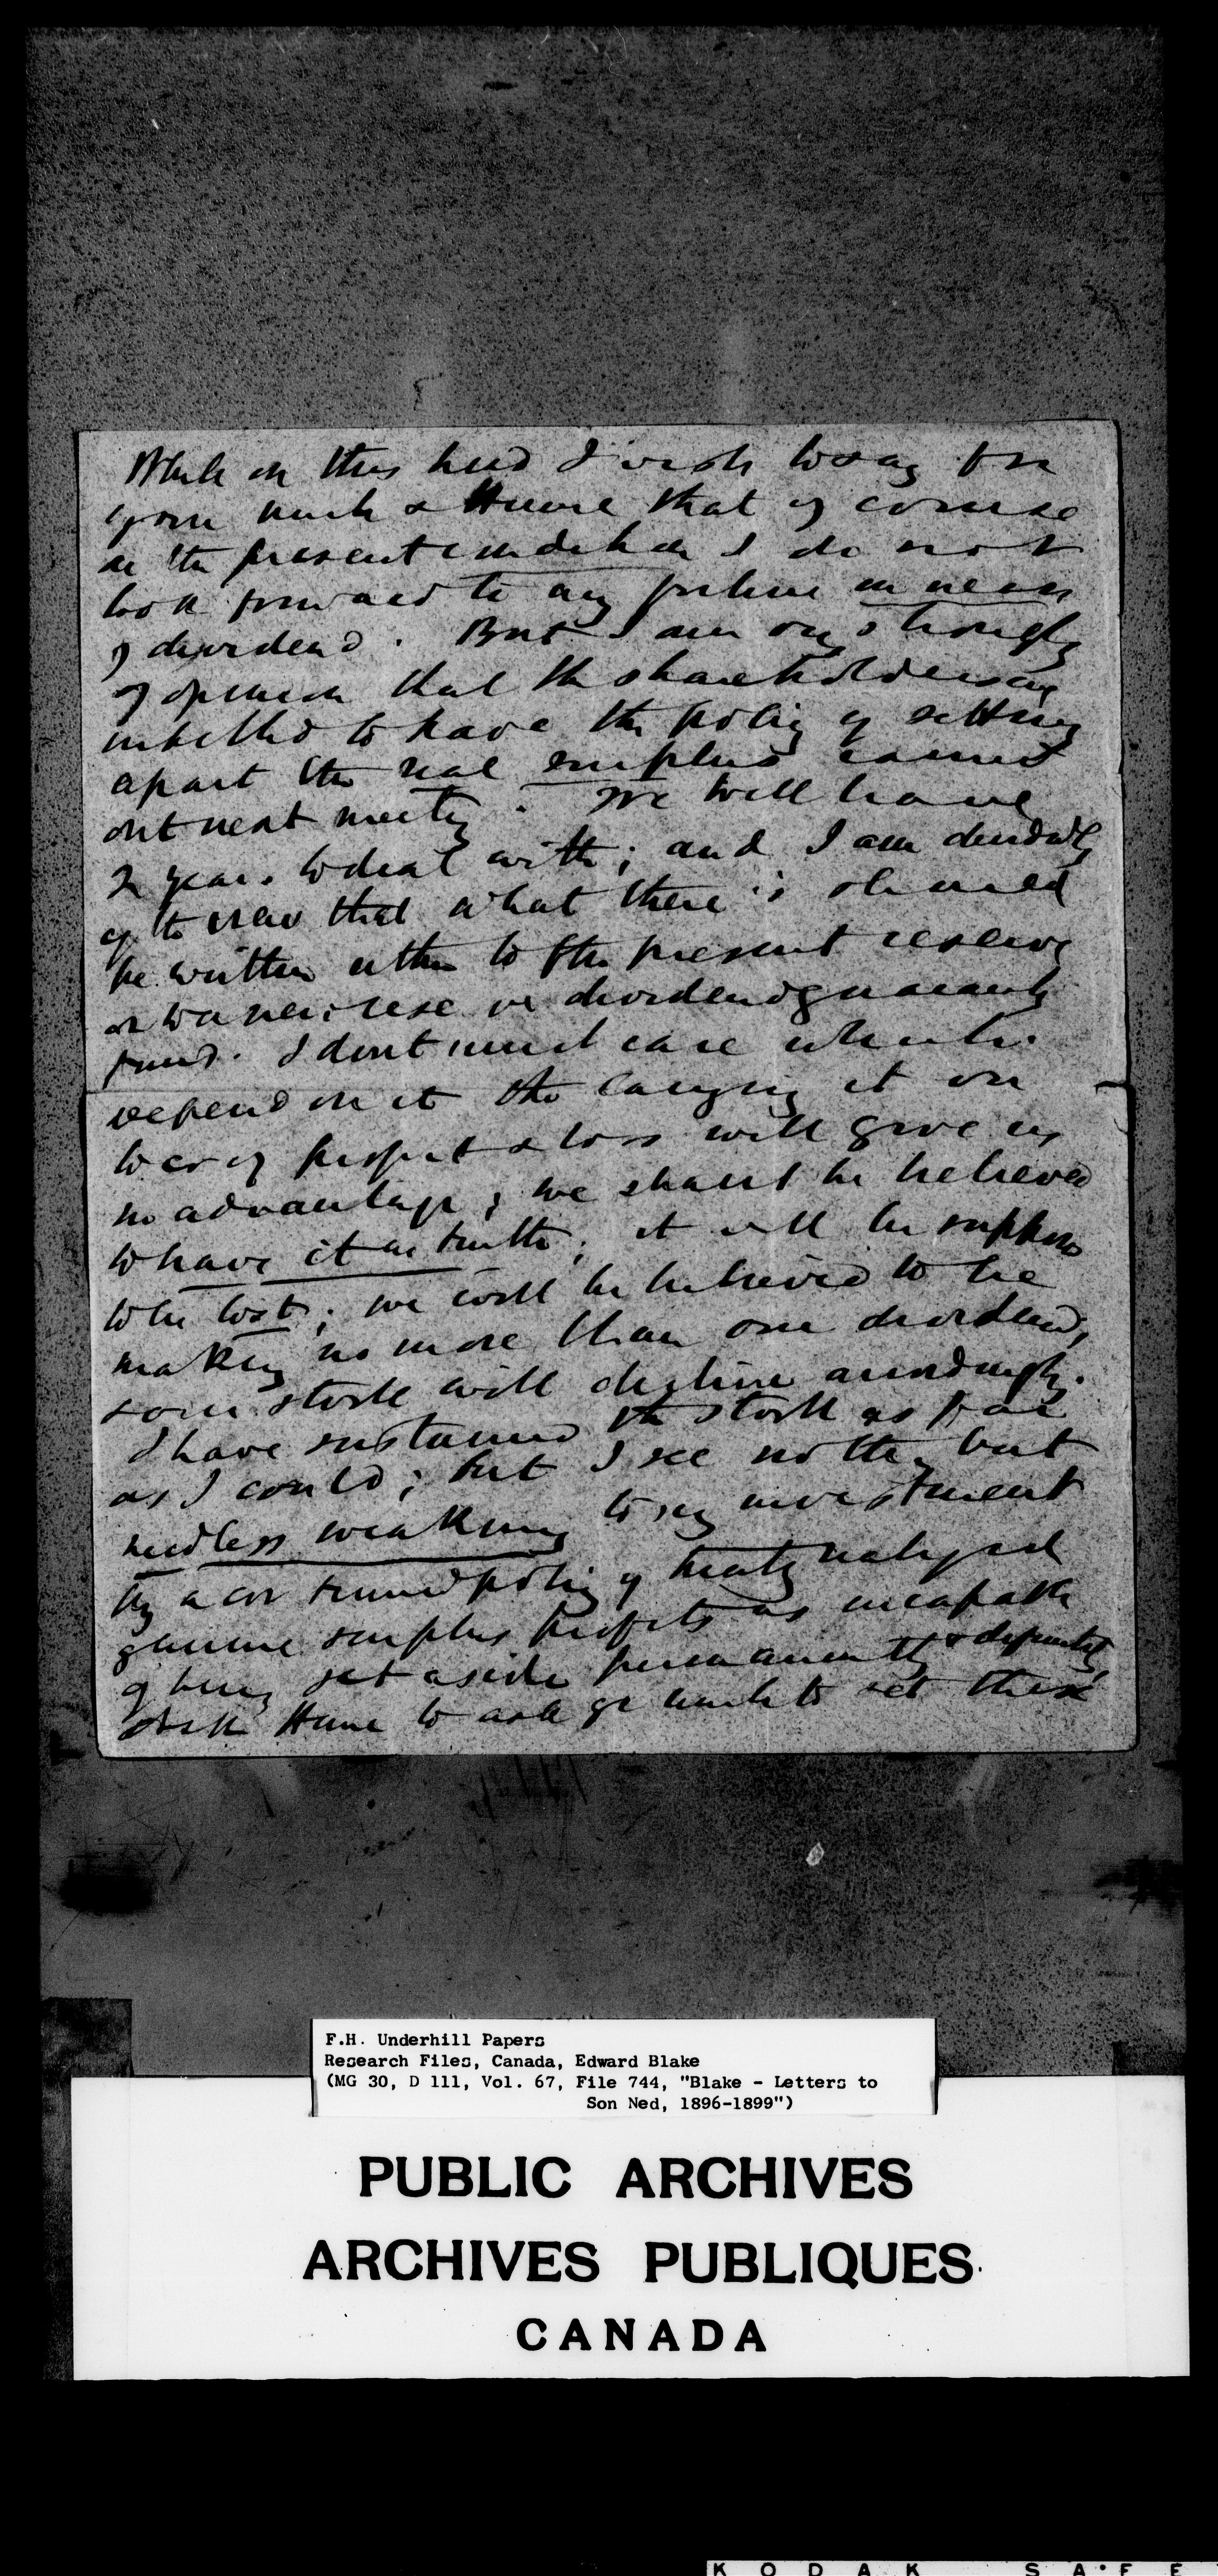 While on this head I wish to say for
your uncle & Hume that of course
in the present condition I do not
look forward to any further increase
of dividend. But I am very strongly
of opinion that the shareholders are
entitled to have the policy of setting
apart the real surplus carried
out next meeting. We will have
2 years to deal with; and I am decidedly
of the view that what there is should
be written either to the present reserve
or to a new reserve or dividend guarantee
fund. I dont much care which.
Depend on it the carrying it on
to cr of profit & loss will give us
no advantage; we shant be believed
to have it in truth; it will be supposed
to be lost; we will be believed to be
making no more than our dividend,
& our stock will decline accordingly.
I have sustained the stock as far
as I could; but I see nothing but
needless weakening to my investment
by a continued policy of treating
genuine surplus profits as incapable
of being set aside permanently & definitely,
Ask Hume to ask yr uncle to let these
F.H. Underhill Papers
Research Files, Canada, Edward Blake
(MG 30, D 111, Vol. 67, File 744, "Blake - Letters to
Son Ned, 1896-1899")
PUBLIC ARCHIVES
ARCHIVES PUBLIQUES
CANADA
KODAK SAFE